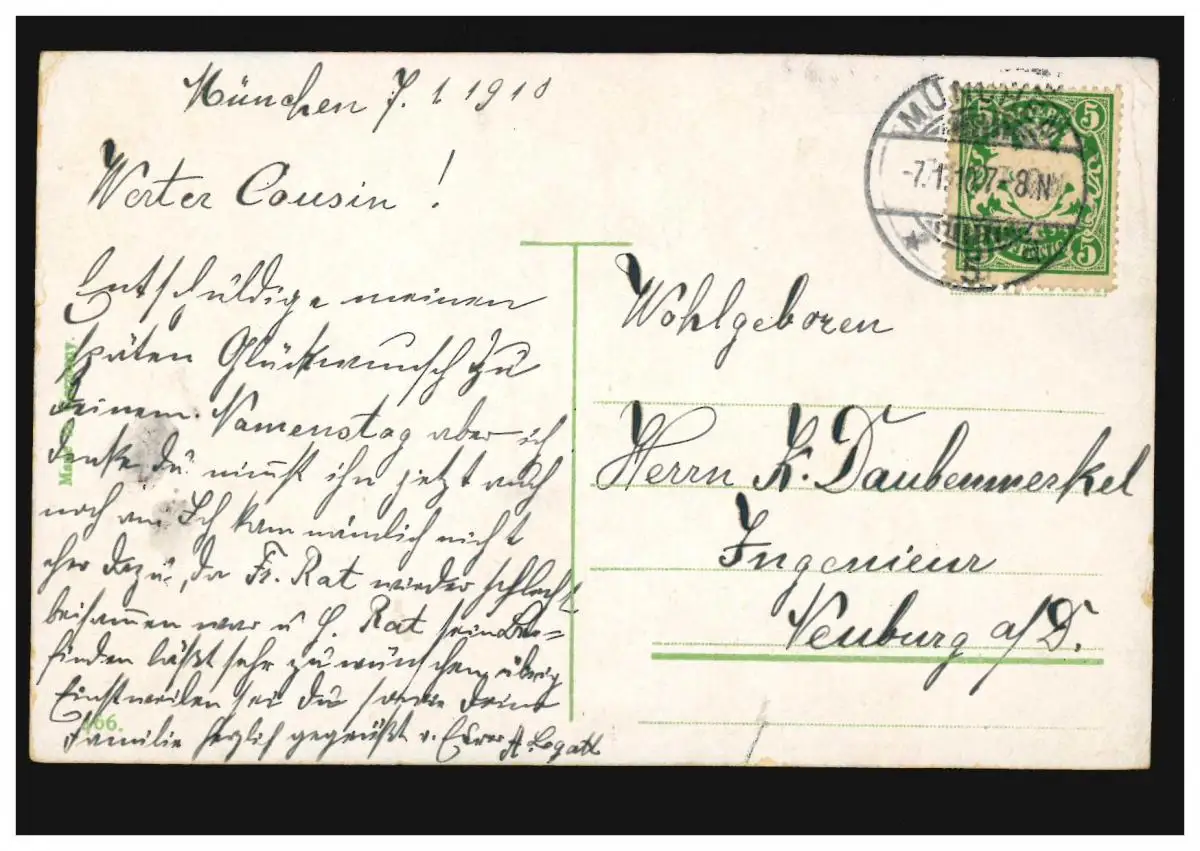 München 7.1.1910
Werter Cousin!
Entschuldige meinen
späten Glückwunsch zu
Deinem Namenstag aber ich
denke Du nimmst ihn jetzt auch
noch an. Ich kam nämlich nicht
eher dazu, da Fr. Rat wieder schlecht
beisammen war u H. Rat sein Be=
finden läßt sehr zu wünschen übrig
Einstweilen sei Du sowie Deine
Familie herzlich gegrüßt v. Eurer A.
466.
MÜNCHEN
-7.1.10.7-8N
5
5
5
5
Wohlgeboren
Herrn K. Daubenmerkel
Ingenieur
Neuburg a/D.